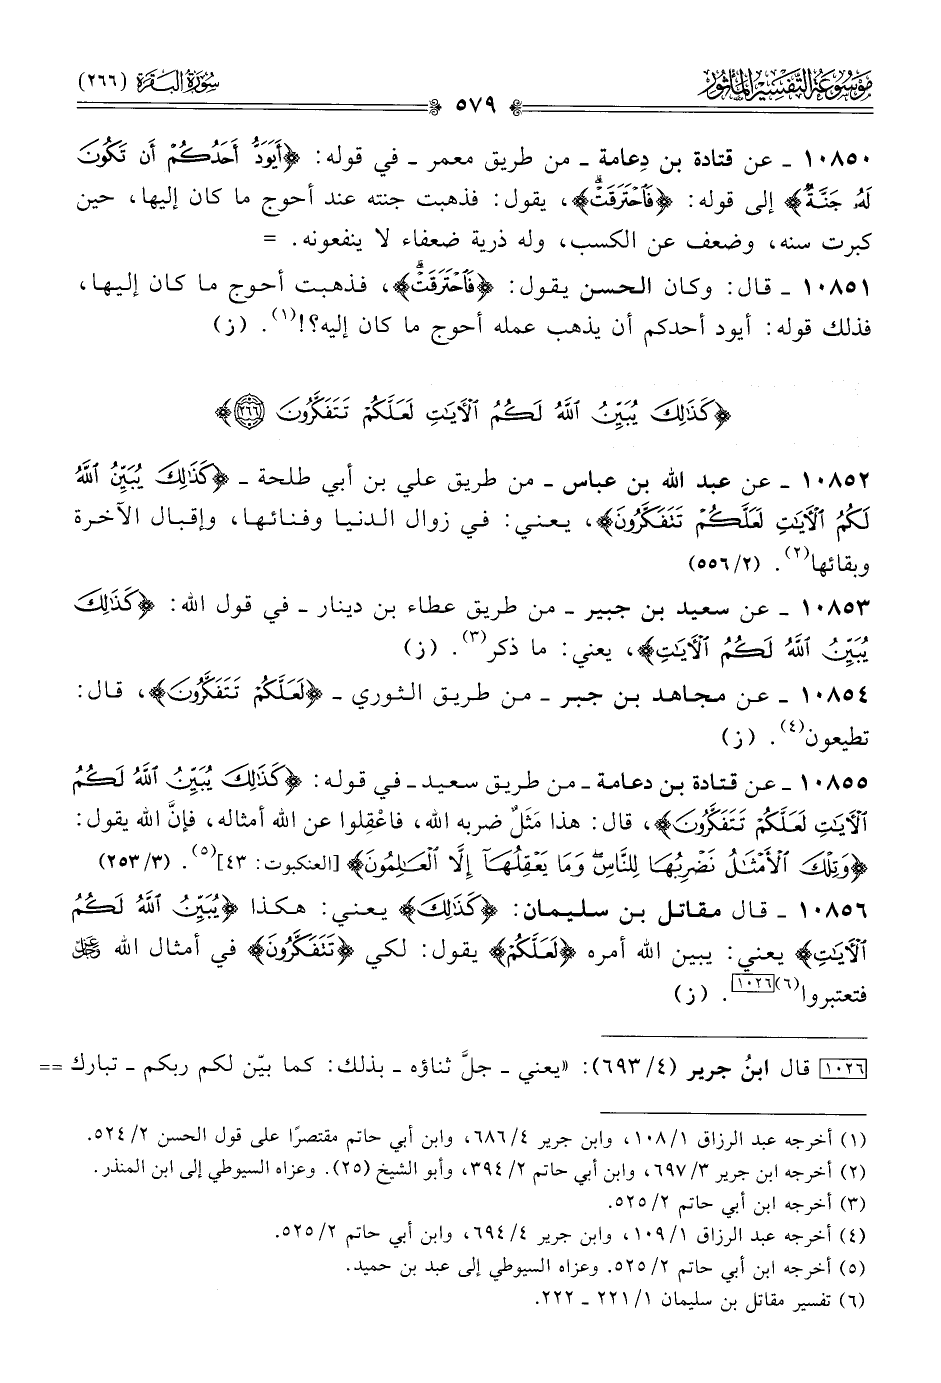 موسوعة التفسير المأثور
سورة البقرة (٢٦٦)
٥٧٩
١٠٨٥٠ ـ عن قتادة بن دِعامة ـ من طريق معمر ـ في قوله: ﴿أَيَوَدُّ أَحَدُكُمْ أَن تَكُونَ
لَهُۥ جَنَّةٌ﴾ إلى قوله: ﴿فَٱحْتَرَقَتْۗ﴾، يقول: فذهبت جنته عند أحوج ما كان إليها، حين
كبرت سنه، وضعف عن الكسب، وله ذرية ضعفاء لا ينفعونه. =
١٠٨٥١ ـ قال: وكان الحسن يقول: ﴿فَٱحْتَرَقَتْۗ﴾، فذهبت أحوج ما كان إليها،
فذلك قوله: أيود أحدكم أن يذهب عمله أحوج ما كان إليه؟!(١). (ز)
﴿كَذَٰلِكَ يُبَيِّنُ ٱللَّهُ لَكُمُ ٱلْآيَٰتِ لَعَلَّكُمْ تَتَفَكَّرُونَ ٢٦٦﴾
١٠٨٥٢ ـ عن عبد الله بن عباس ـ من طريق علي بن أبي طلحة ـ ﴿كَذَٰلِكَ يُبَيِّنُ ٱللَّهُ
لَكُمُ ٱلْآيَٰتِ لَعَلَّكُمْ تَتَفَكَّرُونَ﴾، يعني: في زوال الدنيا وفنائها، وإقبال الآخرة
وبقائها(٢). (٢/٥٥٦)
١٠٨٥٣ ـ عن سعيد بن جبير ـ من طريق عطاء بن دينار ـ في قول الله: ﴿كَذَٰلِكَ
يُبَيِّنُ ٱللَّهُ لَكُمُ ٱلْآيَٰتِ﴾، يعني: ما ذكر(٣). (ز)
١٠٨٥٤ ـ عن مجاهد بن جبر ـ من طريق الثوري ـ ﴿لَعَلَّكُمْ تَتَفَكَّرُونَ﴾، قال:
تطيعون(٤). (ز)
١٠٨٥٥ ـ عن قتادة بن دعامة ـ من طريق سعيد ـ في قوله: ﴿كَذَٰلِكَ يُبَيِّنُ ٱللَّهُ لَكُمُ
ٱلْآيَٰتِ لَعَلَّكُمْ تَتَفَكَّرُونَ﴾، قال: هذا مَثَلٌ ضربه الله، فاعْقِلوا عن الله أمثاله، فإنَّ الله يقول:
﴿وَتِلْكَ ٱلْأَمْثَٰلُ نَضْرِبُهَا لِلنَّاسِۖ وَمَا يَعْقِلُهَآ إِلَّا ٱلْعَٰلِمُونَ﴾ [العنكبوت: ٤٣](٥). (٣/٢٥٣)
١٠٨٥٦ ـ قال مقاتل بن سليمان: ﴿كَذَٰلِكَ﴾ يعني: هكذا ﴿يُبَيِّنُ ٱللَّهُ لَكُمُ
ٱلْآيَٰتِ﴾ يعني: يبين الله أمره ﴿لَعَلَّكُمْ﴾ يقول: لكي ﴿تَتَفَكَّرُونَ﴾ في أمثال الله ﷿
فتعتبروا(٦)[١٠٢٦]. (ز)
[١٠٢٦] قال ابنُ جرير (٤/٦٩٣): «يعني ـ جلَّ ثناؤه ـ بذلك: كما بيّن لكم ربكم ـ تبارك ==
(١) أخرجه عبد الرزاق ١/١٠٨، وابن جرير ٤/٦٨٦، وابن أبي حاتم مقتصرًا على قول الحسن ٢/٥٢٤.
(٢) أخرجه ابن جرير ٣/٦٩٧، وابن أبي حاتم ٢/٣٩٤، وأبو الشيخ (٢٥). وعزاه السيوطي إلى ابن المنذر.
(٣) أخرجه ابن أبي حاتم ٢/٥٢٥.
(٤) أخرجه عبد الرزاق ١/١٠٩، وابن جرير ٤/٦٩٤، وابن أبي حاتم ٢/٥٢٥.
(٥) أخرجه ابن أبي حاتم ٢/٥٢٥. وعزاه السيوطي إلى عبد بن حميد.
(٦) تفسير مقاتل بن سليمان ١/٢٢١ ـ ٢٢٢.